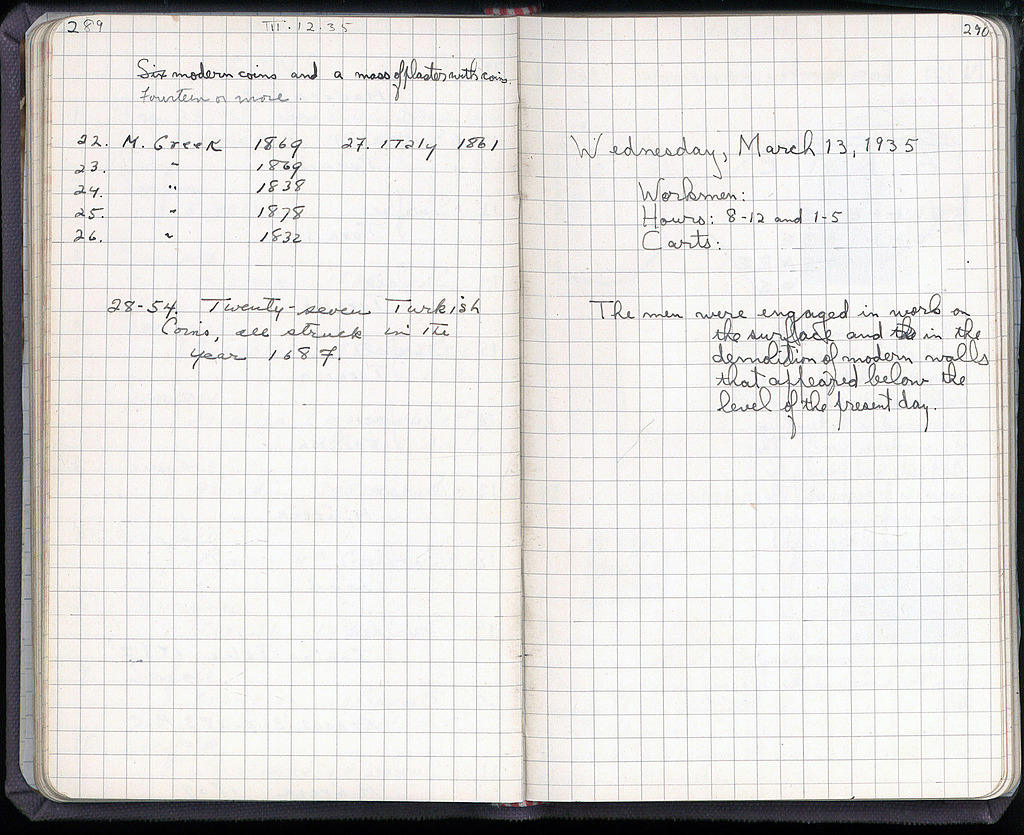 289
III · 12 · 35
Six modern coins and a mass of plaster with coins.
Fourteen or more.
22. M. Greek 1869 27. ITaly 1861
23. " 1869
24. " 1838
25. " 1878
26. " 1832
28-54. Twenty-seven Turkish
Coins, all struck in the
year 1687.
290
Wednesday, March 13, 1935
Workmen:
Hours: 8-12 and 1-5
Carts:
The men were engaged in work on
the surface and in the
demolition of modern walls
that appeared below the
level of the present day.